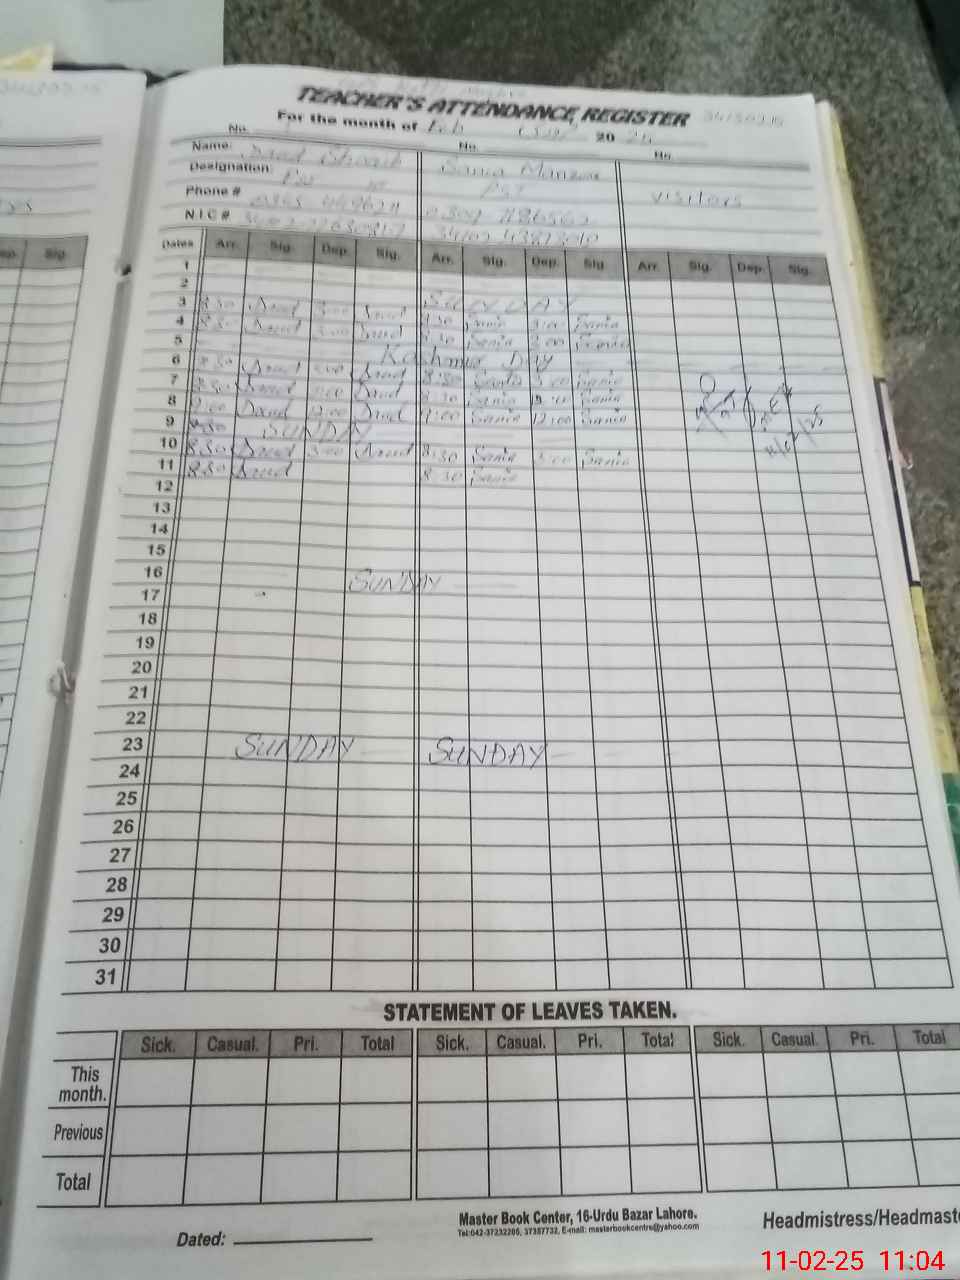 TEACHER'S ATTENDANCE REGISTER
For the month of Feb 20 25
No. No. No.
Name: Sania
Designation: PST visitors
Phone #
N.I.C #
Dates Arr. Sig. Dep. Sig. Arr. Sig. Dep. Sig. Arr. Sig. Dep. Sig.
1
2 SUNDAY
3 8:30 Daud 3:00 Daud 8:30 Sania 3:00 Sania
4 8:30 Daud 3:00 Daud 8:30 Sania 3:00 Sania
5 Kashmir Day
6 8:30 Daud 3:00 Daud 8:30 Sania 3:00 Sania
7 8:30 Daud 8:30 Sania Sania
8 9:00 Daud 12:00 Daud 9:00 Sania 12:00 Sania
9 SUNDAY
10 8:30 Daud 3:00 Daud 8:30 Sania 3:00 Sania
11 8:30 Daud 8:30 Sania
12
13
14
15
16 SUNDAY
17
18
19
20
21
22
23 SUNDAY SUNDAY
24
25
26
27
28
29
30
31
STATEMENT OF LEAVES TAKEN.
Sick. Casual. Pri. Total Sick. Casual. Pri. Total Sick. Casual. Pri. Total
This
month.
Previous
Total
Master Book Center, 16-Urdu Bazar Lahore.
Tel:042-37232205, 37357732, E-mail: masterbookcentre@yahoo.com
Headmistress/Headmaste
Dated:
11-02-25 11:04